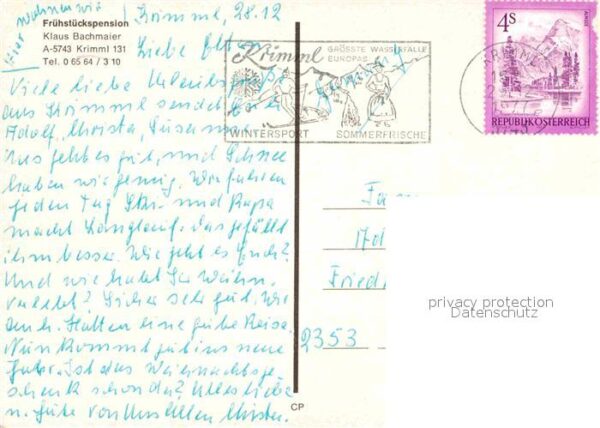 Hier wohnen wir
Frühstückspension
Klaus Bachmaier
A-5743 Krimml 131
Tel. 0 65 64 / 310
Krimml, 28.12
Liebe
Viele liebe Urlaubsgrüße
aus Krimml senden Euch
Adolf, Christa, Susan und
Uns geht es gut, und Schnee
haben wir genug. Wir fahren
jeden Tag Ski und Papa
macht Langlauf. das gefällt
ihm besser. Wie geht es Euch?
Und wie habt Ihr Weihn.
verlebt? Sicher sehr gut. Wir
auch. Hatten eine gute Reise.
Nun kommt gut ins neue
Jahr. Ist das Weihnachtsge-
schenk schon da? Alles Liebe
u. Gute von uns Allen Christa
Krimml
GRÖSSTE WASSERFÄLLE
EUROPAS
WINTERSPORT SOMMERFRISCHE
4S
REPUBLIK ÖSTERREICH
Fa
Ado
Fried
2353
privacy protection
Datenschutz
CP